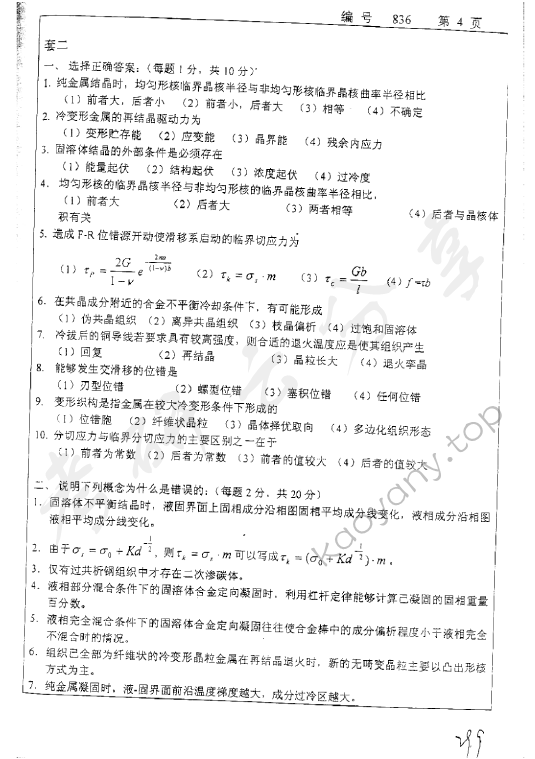 编 号 836 第 4 页
套二
一、 选择正确答案：（每题 1 分，共 10 分）
1. 纯金属结晶时，均匀形核临界晶核半径与非均匀形核临界晶核曲率半径相比
（1）前者大，后者小 （2）前者小，后者大 （3）相等 （4）不确定
2. 冷变形金属的再结晶驱动力为
（1）变形贮存能 （2）应变能 （3）晶界能 （4）残余内应力
3. 固溶体结晶的外部条件是必须存在
（1）能量起伏 （2）结构起伏 （3）浓度起伏 （4）过冷度
4. 均匀形核的临界晶核半径与非均匀形核的临界晶核曲率半径相比，
（1）前者大 （2）后者大 （3）两者相等 （4）后者与晶核体
积有关
5. 造成 F-R 位错源开动使滑移系启动的临界切应力为
（1） τ_P = 2G/(1-ν) e^(-2πa/((1-ν)b)) （2） τ_k = σ_s · m （3） τ_c = Gb/l （4） f = τb
6. 在共晶成分附近的合金不平衡冷却条件下，有可能形成
（1）伪共晶组织 （2）离异共晶组织 （3）枝晶偏析 （4）过饱和固溶体
7. 冷拔后的铜导线若要求具有较高强度，则合适的退火温度应是使其组织产生
（1）回复 （2）再结晶 （3）晶粒长大 （4）退火孪晶
8. 能够发生交滑移的位错是
（1）刃型位错 （2）螺型位错 （3）塞积位错 （4）任何位错
9. 变形织构是指金属在较大冷变形条件下形成的
（1）位错胞 （2）纤维状晶粒 （3）晶体择优取向 （4）多边化组织形态
10. 分切应力与临界分切应力的主要区别之一在于
（1）前者为常数 （2）后者为常数 （3）前者的值较大 （4）后者的值较大
二、 说明下列概念为什么是错误的：（每题 2 分、共 20 分）
1. 固溶体不平衡结晶时，液固界面上固相成分沿相图固相平均成分线变化，液相成分沿相图
液相平均成分线变化。
2. 由于 σ_s = σ_0 + Kd^(-1/2)，则 τ_k = σ_s · m 可以写成 τ_k = (σ_0 + Kd^(-1/2)) · m 。
3. 仅有过共析钢组织中才存在二次渗碳体。
4. 液相部分混合条件下的固溶体合金定向凝固时，利用杠杆定律能够计算已凝固的固相重量
百分数。
5. 液相完全混合条件下的固溶体合金定向凝固往往使合金棒中的成分偏析程度小于液相完全
不混合时的情况。
6. 组织已全部为纤维状的冷变形晶粒金属在再结晶退火时，新的无畸变晶粒主要以凸出形核
方式为主。
7. 纯金属凝固时，液-固界面前沿温度梯度越大，成分过冷区越大。
考研云分享
kaoyany.top
299